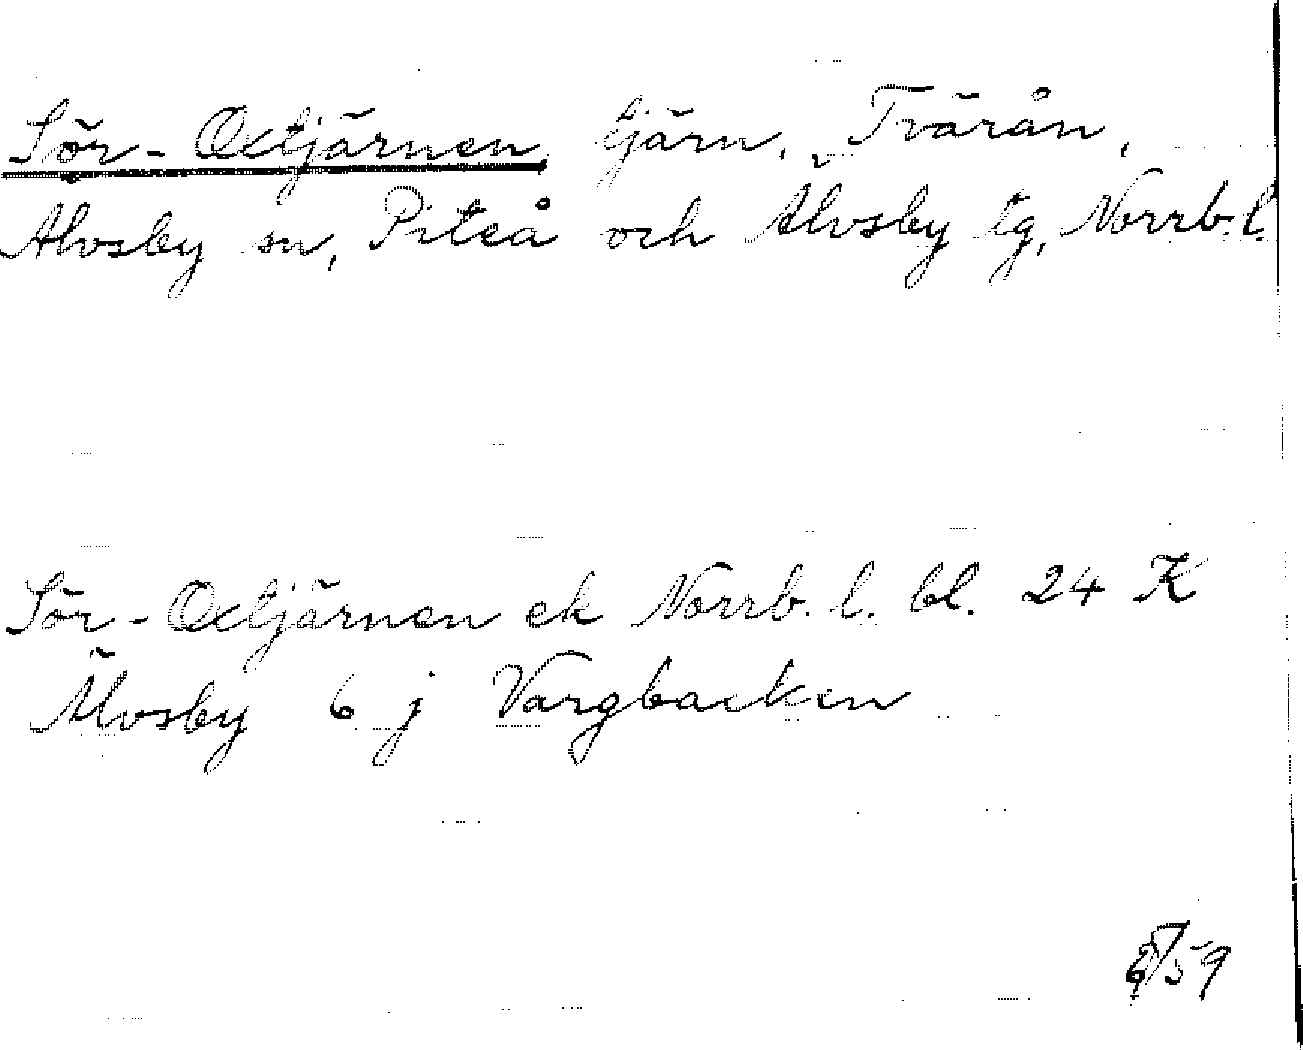 Sör-Oxtjärnen, tjärn, Tvärån,
Älvsby sn, Piteå och Älvsby tg, Norrb. l.
Sör-Oxtjärnen ek Norrb. l. bl. 24 K
Älvsby 6 j Vargbacken